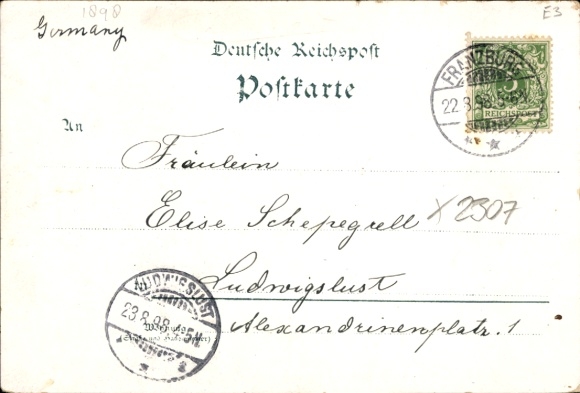 1898
E3
Germany
Deutsche Reichspost
Postkarte
FRANZBURG
22.8.98
5
REICHSPOST
An
Fräulein
Elise Schepegrell X2307
Ludwigslust
Alexandrinenplatz. 1
LUDWIGSLUST
23.8.98
Wohnung